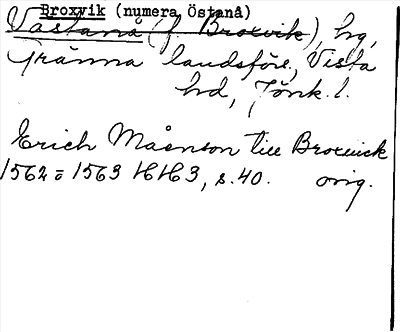 Broxvik (numera Östanå)
Västanå (f. Broxvik), hg,
Gränna landsförs., Vista
hd, Jönk. l.
Erich Månson till Broxuick
1562 = 1563 HH3, s. 40. orig.